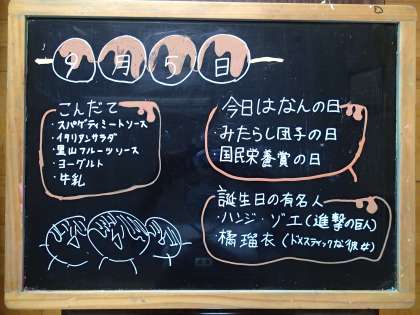 9月5日
こんだて
・スパゲティミートソース
・イタリアンサラダ
・里山フルーツソース
・ヨーグルト
・牛乳
今日はなんの日
・みたらし団子の日
・国民栄養賞の日
誕生日の有名人
・ハンジ・ゾエ(進撃の巨人)
・橘瑠衣(ドメスティックな彼女)